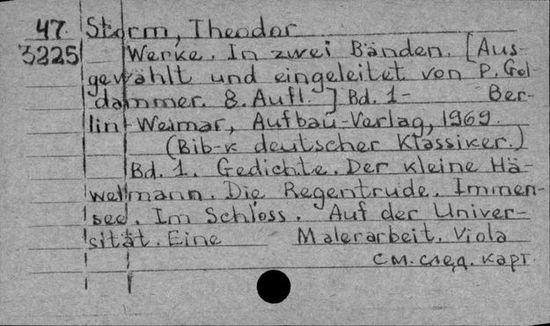 47. Storm, Theodor
3225 Werke. In zwei Bänden. [Aus-
gewählt und eingeleitet von P. Gol-
dammer. 8. Aufl.] Bd. 1- Ber-
lin-Weimar, Aufbau-Verlag, 1969.
(Bib-k deutscher Klassiker.)
Bd. 1. Gedichte. Der kleine Hä-
welmann. Die Regentrude. Immen-
see. Im Schloss. Auf der Univer-
sität. Eine Malerarbeit. Viola
см. след. карт.